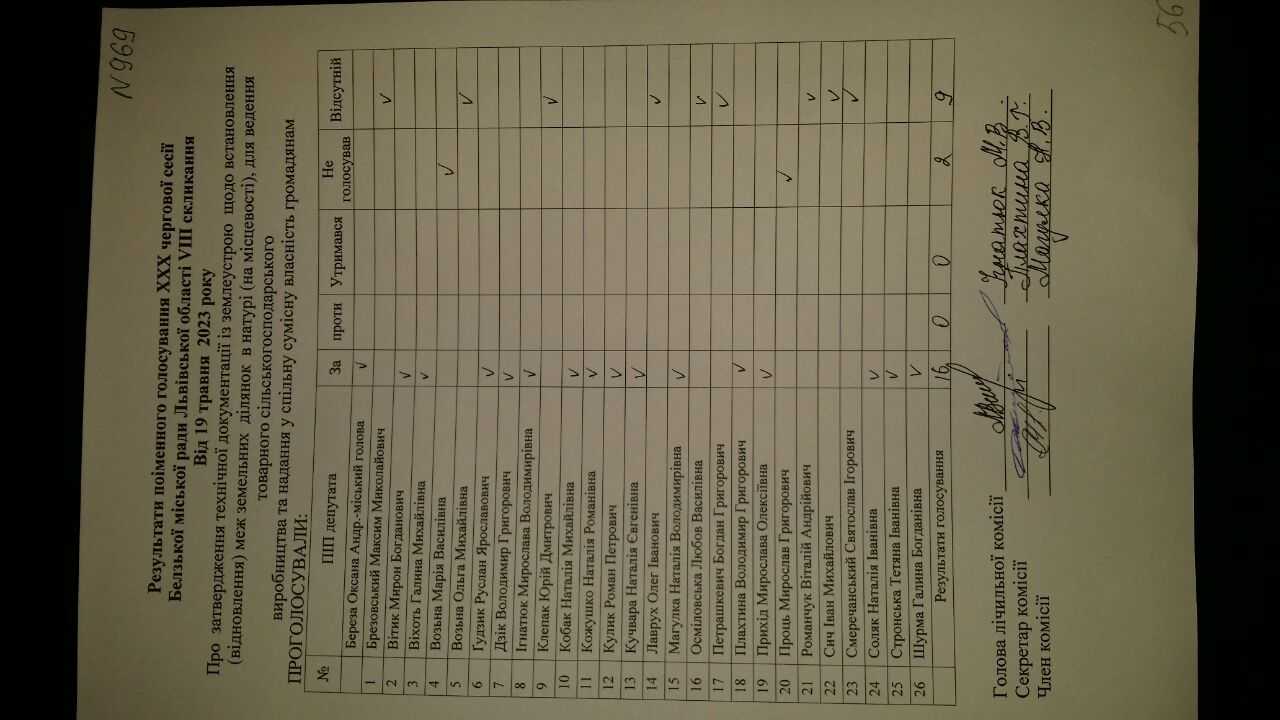 N969
56
Результати поіменного голосування XXX чергової сесії
Белзької міської ради Львівської області VIII скликання
Від 19 травня 2023 року
Про затвердження технічної документації із землеустрою щодо встановлення
(відновлення) меж земельних ділянок в натурі (на місцевості), для ведення
товарного сільськогосподарського
виробництва та надання у спільну сумісну власність громадянам
ПРОГОЛОСУВАЛИ:
№ ПІП депутата За проти Утримався Не голосував Відсутній
Береза Оксана Андр.-міський голова ✓
1 Брезовський Максим Миколайович ✓
2 Вітик Мирон Богданович ✓
3 Віхоть Галина Михайлівна ✓
4 Возьна Марія Василівна ✓
5 Возьна Ольга Михайлівна ✓
6 Гудзик Руслан Ярославович ✓
7 Дзік Володимир Григорович ✓
8 Ігнатюк Мирослава Володимирівна ✓
9 Клепак Юрій Дмитрович ✓
10 Кобак Наталія Михайлівна ✓
11 Кожушко Наталія Романівна ✓
12 Кулик Роман Петрович ✓
13 Кучвара Наталія Євгенівна ✓
14 Лаврух Олег Іванович ✓
15 Магулка Наталія Володимирівна ✓
16 Осміловська Любов Василівна ✓
17 Петрашкевич Богдан Григорович ✓
18 Плахтина Володимир Григорович ✓
19 Прихід Мирослава Олексіївна ✓
20 Проць Мирослав Григорович ✓
21 Романчук Віталій Андрійович ✓
22 Сич Іван Михайлович ✓
23 Смеречанський Святослав Ігорович ✓
24 Соляк Наталія Іванівна ✓
25 Стронська Тетяна Іванівна ✓
26 Шурма Галина Богданівна ✓
Результати голосування 16 0 0 2 9
Голова лічильної комісії Ігнатюк М.В
Секретар комісії Плахтина В.Г.
Член комісії Магулка Н.В.